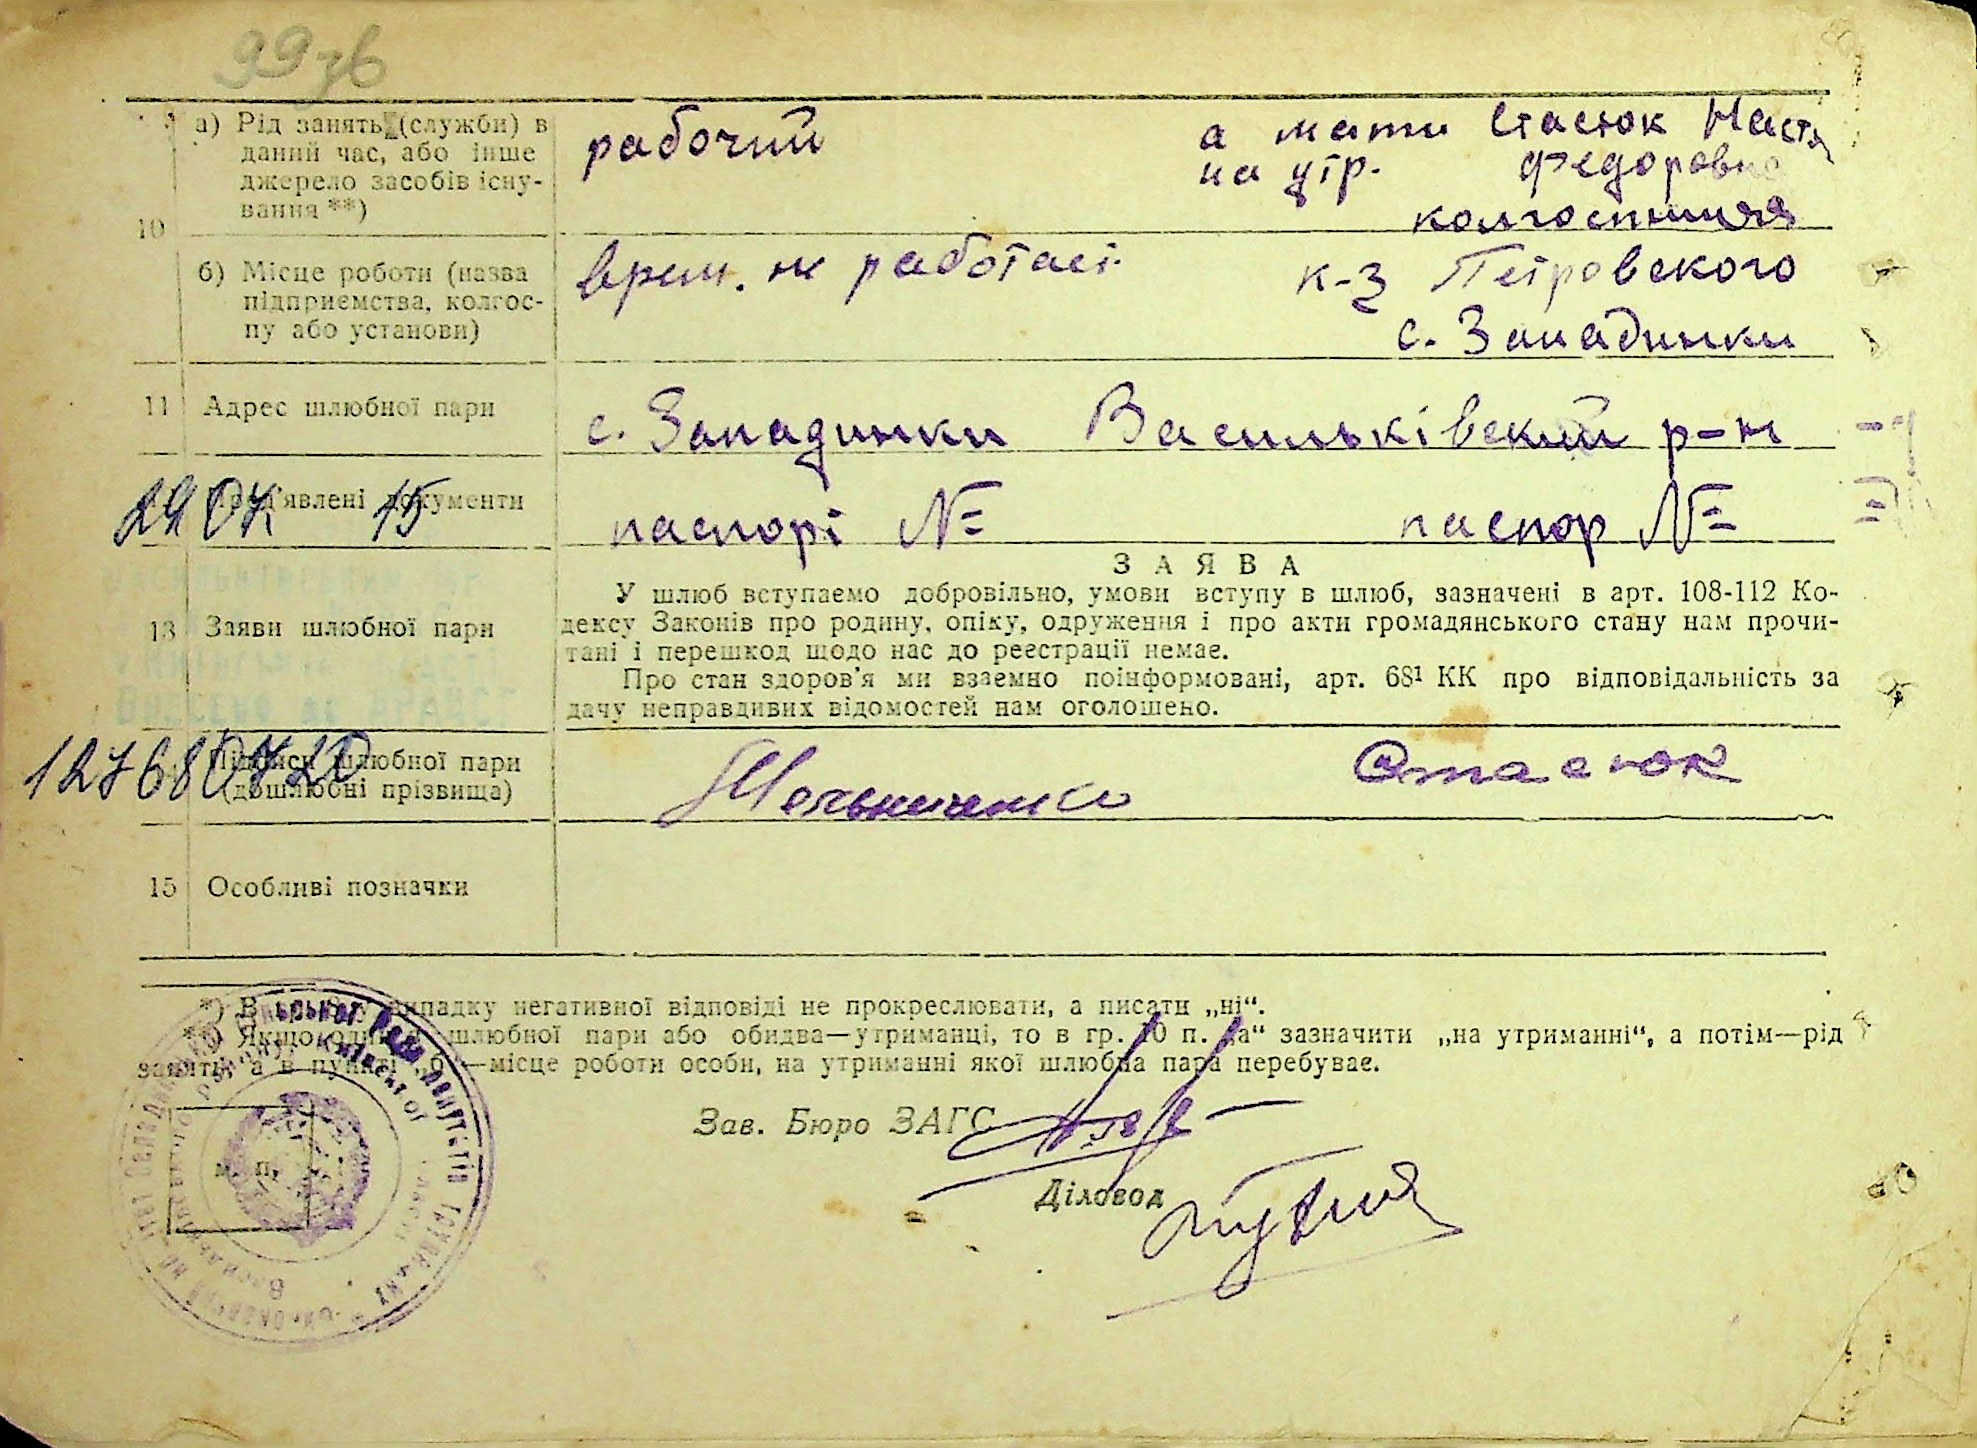 99зв
а) Рід занять (службы) в рабочий а мати Стасюк Настя
даний час, або інше на утр. Федоровна
джерело засобів існу-
вання **) колгоспниця
10
б) Місце роботи (назва врем. не работает к-з Петровского
підприємства, колгос-
пу або установи) с. Западинки
11 Адрес шлюбної пари с. Западинки Васильківский р-н
Пред'явлені документи паспорт № паспор №
29 15
ЗАЯВА
У шлюб вступаємо добровільно, умови вступу в шлюб, зазначені в арт. 108-112 Ко-
13 Заяви шлюбної пари дексу Законів про родину, опіку, одруження і про акти громадянського стану нам прочи-
тані і перешкод щодо нас до реєстрації немає.
Про стан здоров'я ми взаємно поінформовані, арт. 68¹ КК про відповідальність за
дачу неправдивих відомостей нам оголошено.
Підписи шлюбної пари Мельниченко Стасюк
(дошлюбні прізвища)
15 Особливі позначки
*) В випадку негативної відповіді не прокреслювати, а писати „ні“.
**) Якщо шлюбної пари або обидва—утриманці, то в гр. 10 п. „а“ зазначити „на утриманні“, а потім—рід
занять, а в пункті „б“—місце роботи особи, на утриманні якої шлюбна пара перебуває.
Зав. Бюро ЗАГС
м. п.
Діловод